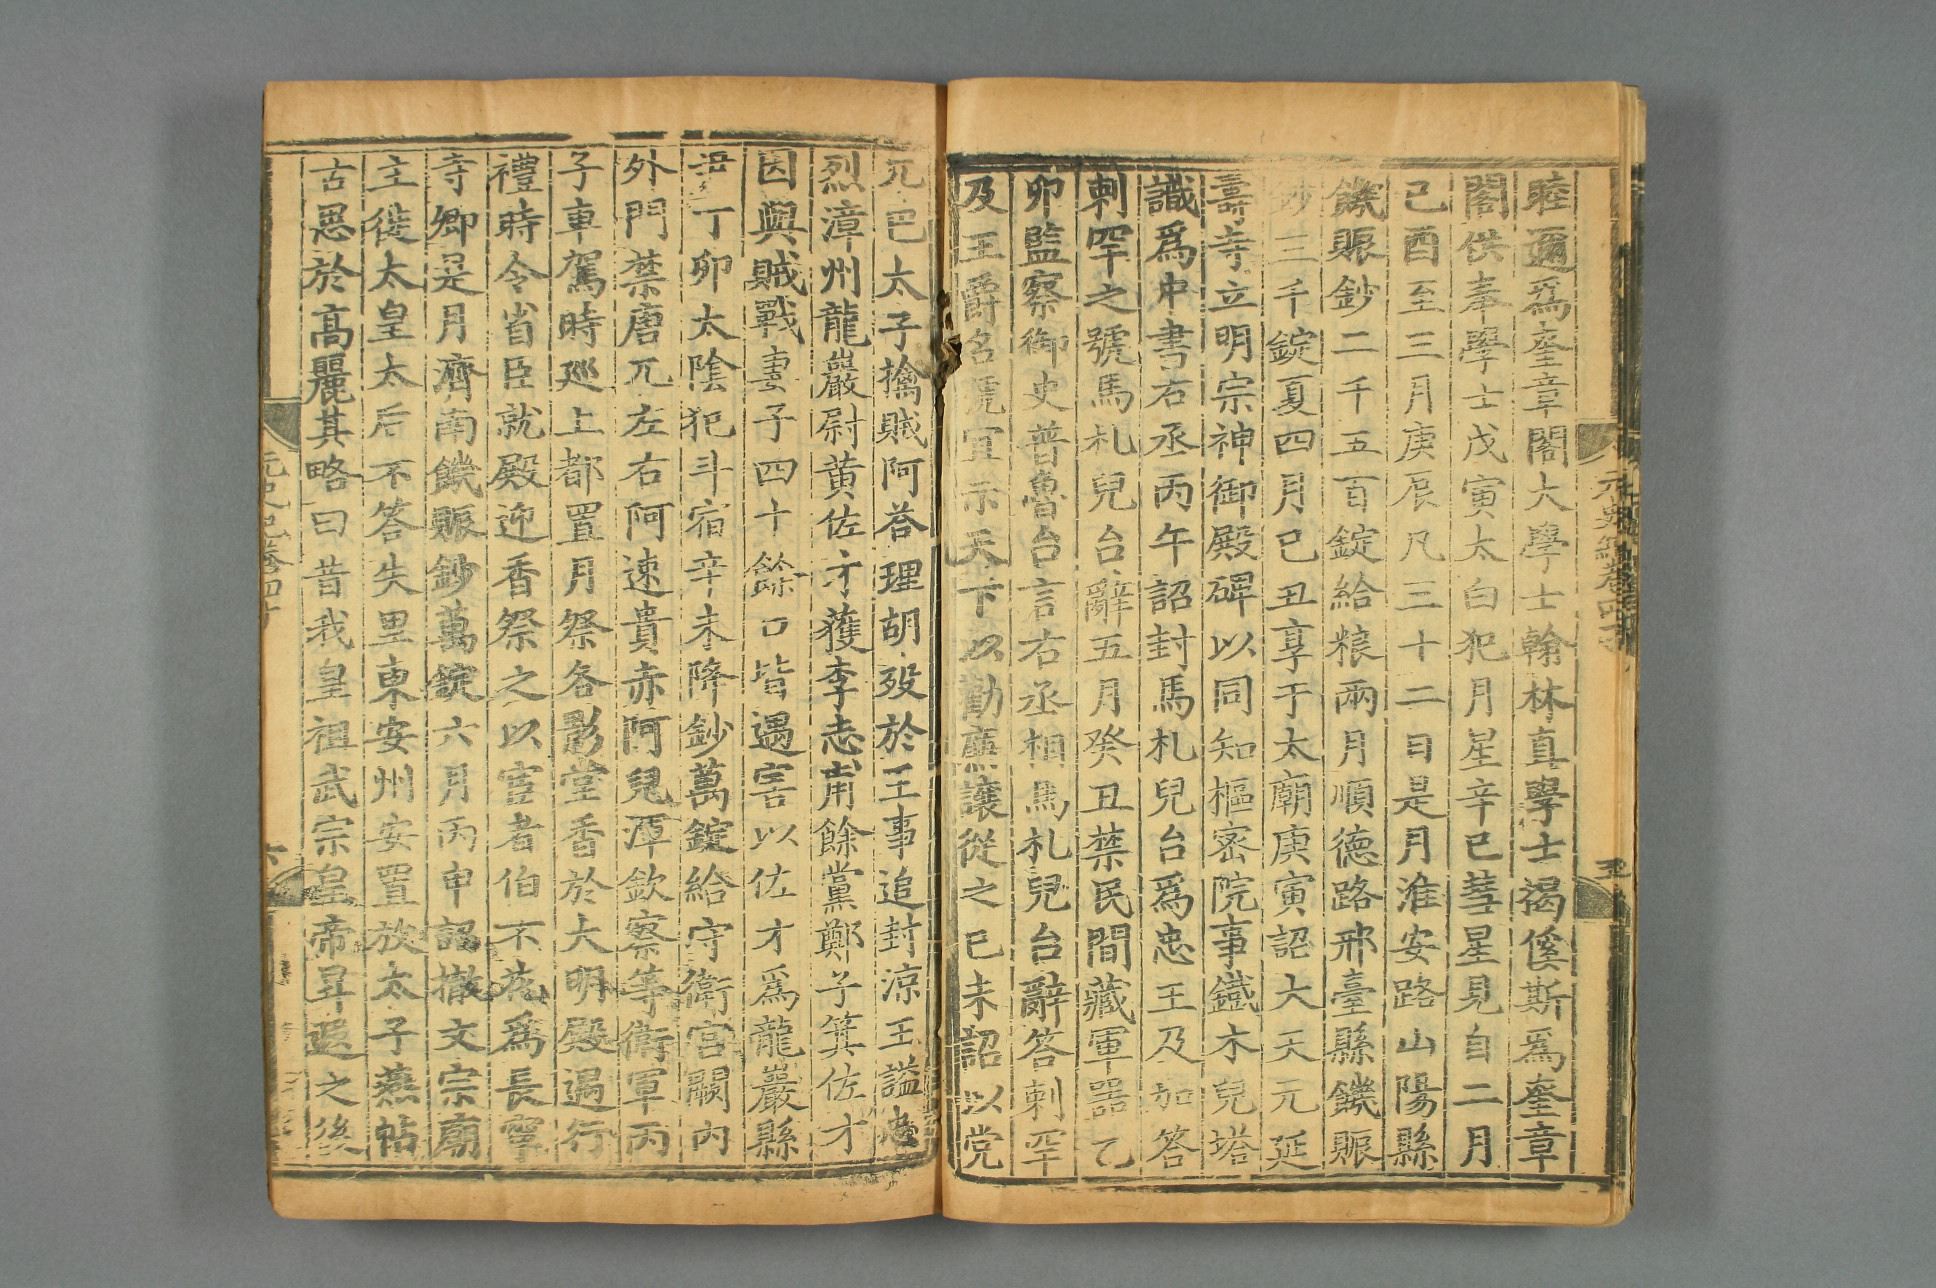 睦邇爲奎章閣大學士翰林直學士褐傒斯爲奎章
閣供奉學士戊寅太白犯月星辛巳彗星見自二月
己酉至三月庚辰凡三十二日是月淮安路山陽縣
饑賑鈔二千五百錠給粮兩月順德路邢臺縣饑賑
鈔三千錠夏四月己丑享于太廟庚寅詔大天元延
壽寺立明宗神御殿碑以同知樞密院事鐵木兒塔
識爲中書右丞丙午詔封馬札兒台爲忠王及加答
剌罕之號馬札兒台辭五月癸丑禁民間藏軍器乙
卯監察御史普魯台言右丞相馬札兒台辭答剌罕
及王爵名號宜示天下以勸廉讓從之己未詔以党
兀巴太子擒賊阿荅理胡歿於王事追封涼王謚忠
烈漳州龍巖尉黄佐才獲李志甫餘黨鄭子箕佐才
因與賊戰妻子四十餘口皆遇害以佐才爲龍巖縣
丁卯太陰犯斗宿辛未降鈔萬錠給守衛宫闕内
外門禁唐兀左右阿速貴赤阿兒渾欽察等衛軍丙
子車駕時廵上都置月祭各影堂香於大明殿遇行
禮時令省臣就殿迎香祭之以宦者伯不花爲長寧
寺卿是月濟南饑賑鈔萬錠六月丙申詔撤文宗廟
主徙太皇太后不答失里東安州安置放太子燕帖
古思於高麗其略曰昔我皇祖武宗皇帝昇遐之後
元史紀卷四十
五
元史紀卷四十
六